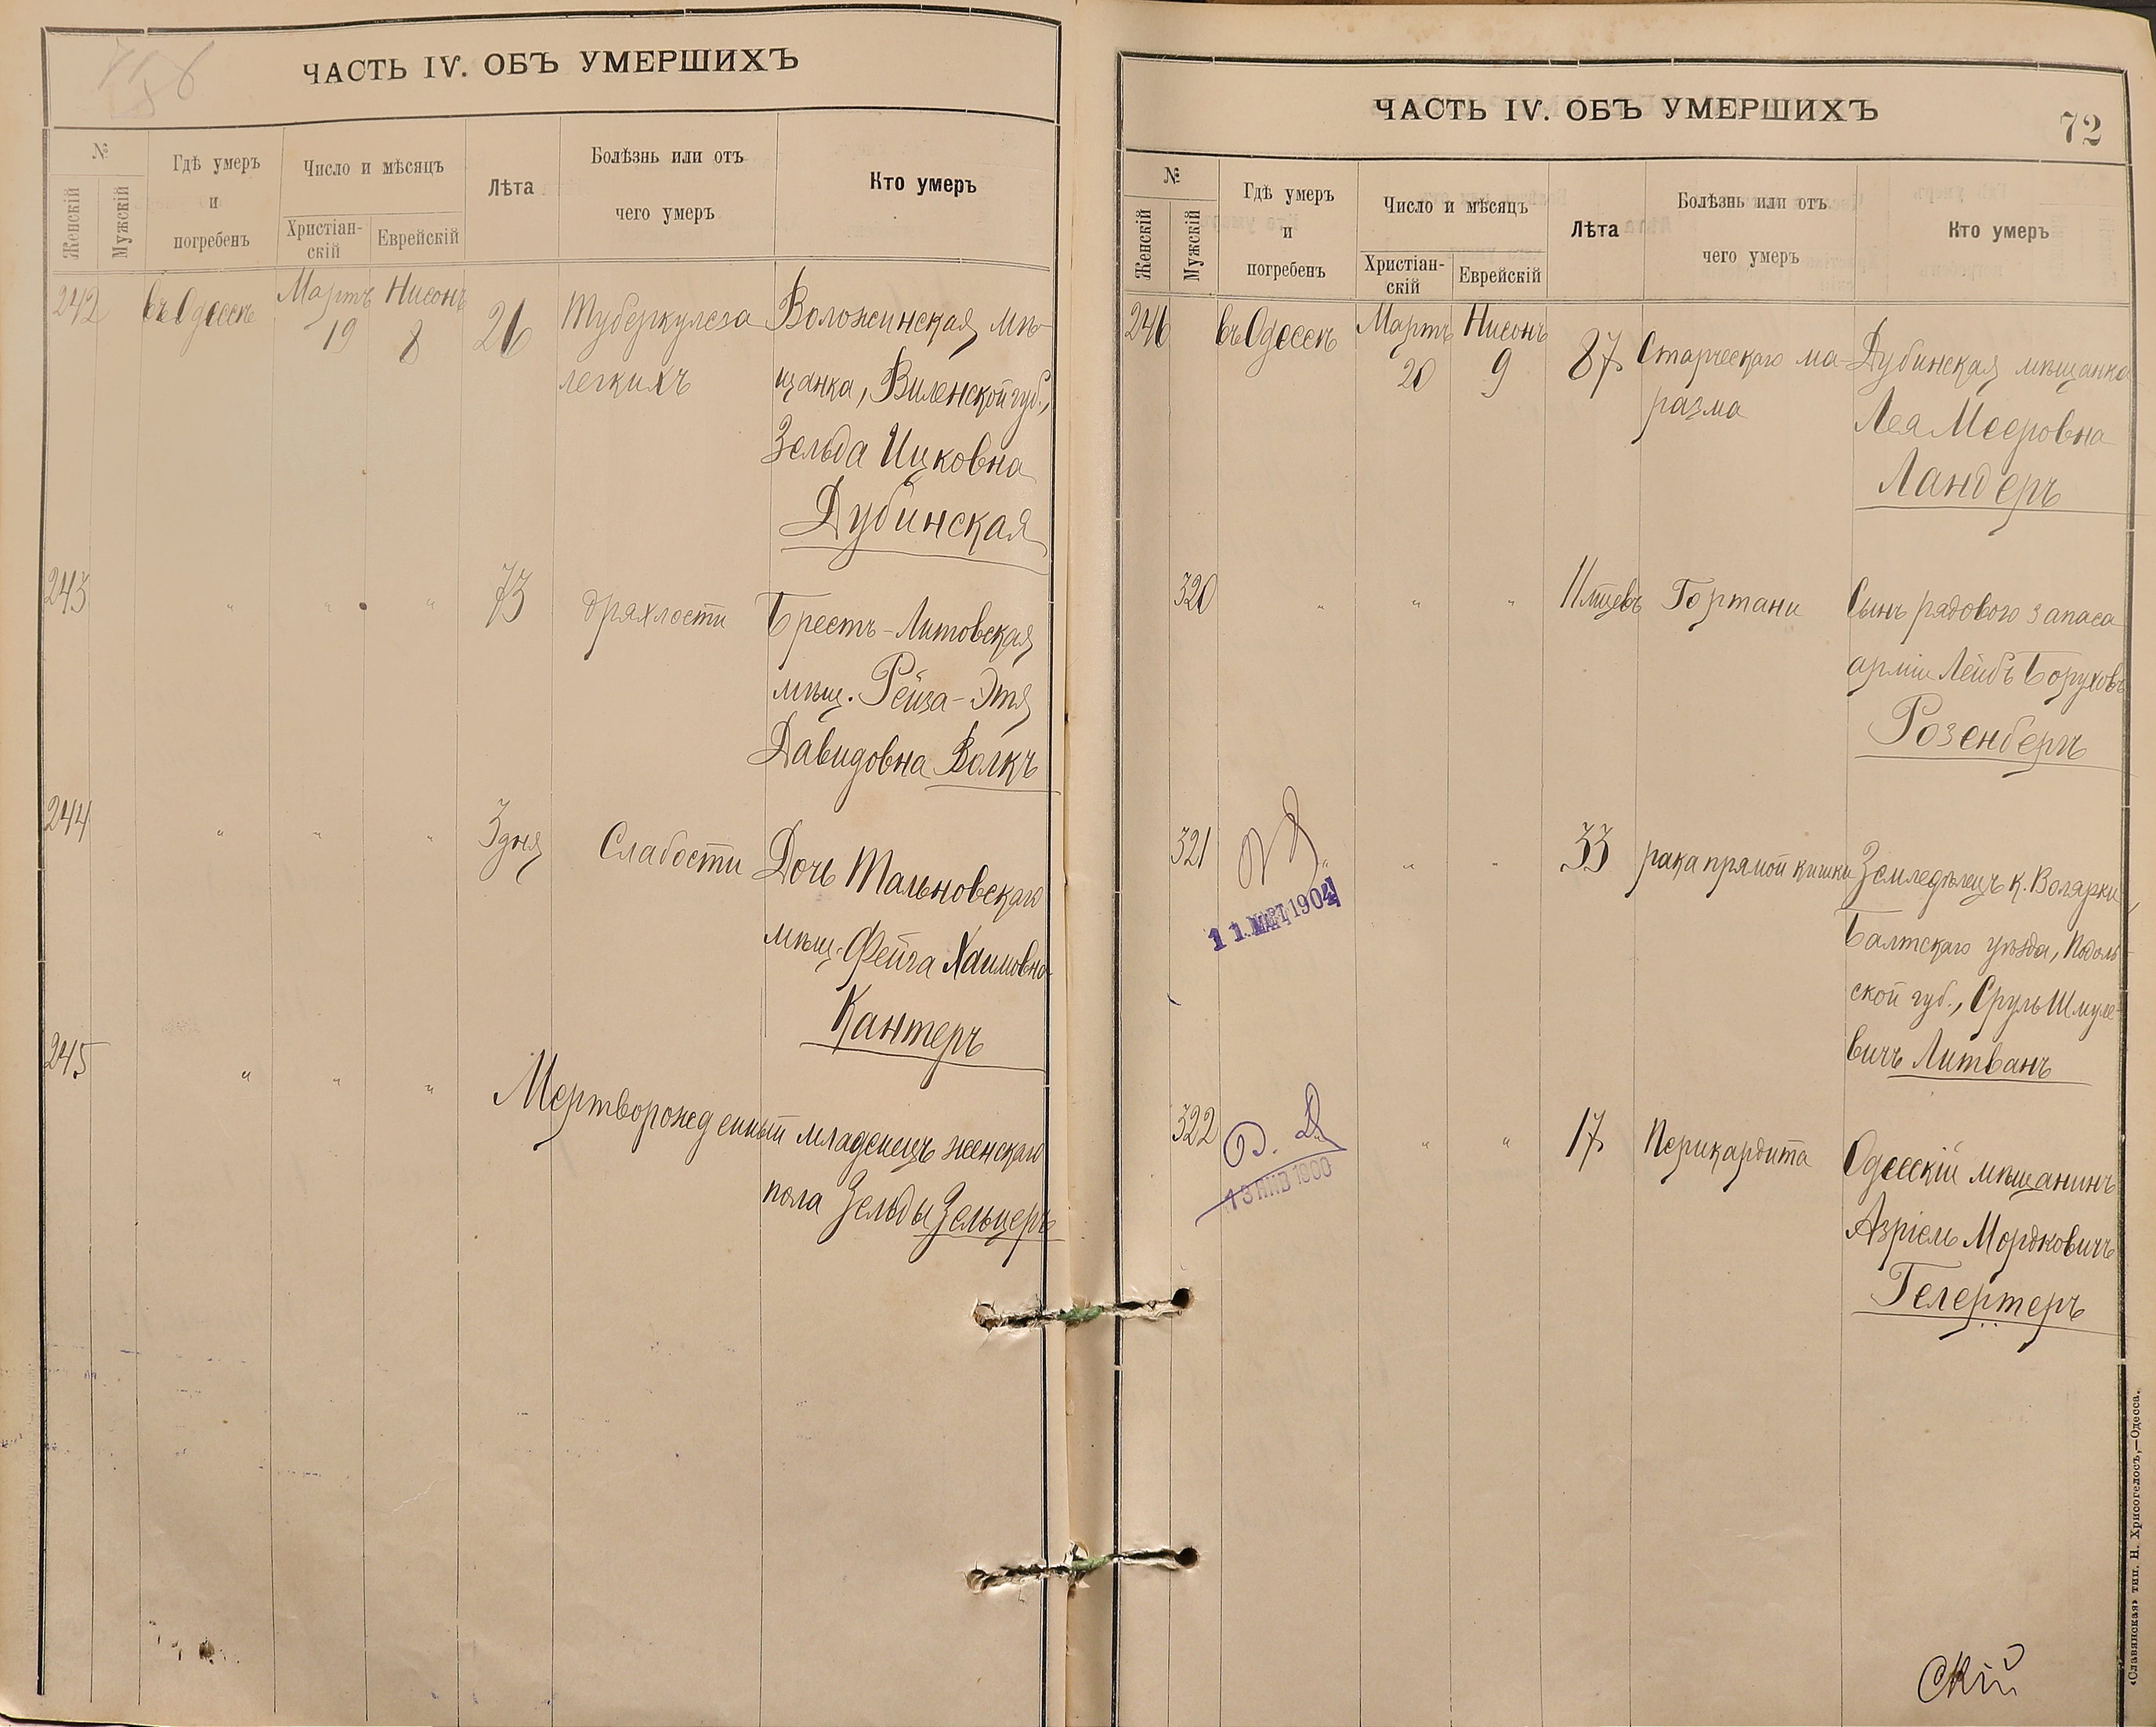 ЧАСТЬ IV. ОБЪ УМЕРШИХЪ
№
Женскій
Мужскій
Гдѣ умеръ
и
погребенъ
Число и мѣсяцъ
Христіан-
скій
Еврейскій
Лѣта
Болѣзнь или отъ
чего умеръ
Кто умеръ
242 въ Одессѣ Мартъ 19 Нисонъ 8 26 Туберкулеза
легкихъ
Воложинская мѣ-
щанка, Виленской губ.,
Зельда Ицковна
Дубинская
243 " " " 73 дряхлости Брестъ-Литовская
мѣщ. Рейза-Этя
Давидовна Волкъ
244 " " " 3 дня Слабости Дочь Тальновскаго
мѣщ. Фейга Хаимовна
Кантеръ
245 " " " Мертворожденный младенецъ женскаго
пола Зельды Зельцеръ
ЧАСТЬ IV. ОБЪ УМЕРШИХЪ
72
№
Женскій
Мужскій
Гдѣ умеръ
и
погребенъ
Число и мѣсяцъ
Христіан-
скій
Еврейскій
Лѣта
Болѣзнь или отъ
чего умеръ
Кто умеръ
246 въ Одессѣ Мартъ 20 Нисонъ 9 87 Старческаго ма-
разма
Дубинская мѣщанка
Лея Мееровна
Ландеръ
320 " " " 11 мцевъ Гортани Сынъ рядового запаса
арміи Лейбъ Боруховъ
Розенбергъ
321 " " " 33 рака прямой кишки Земледѣлецъ к. Волярки
Балтскаго уѣзда, Подоль-
ской губ., Сруль Шмуле-
вичъ Литванъ
11. МАРТ 1904
322 " " 17 Перикардита Одесскій мѣщанинъ
Азріель Мордковичъ
Гелертеръ
13 ЯНВ 1900
скій
«Славянская» тип. Н. Хрисогелосъ,—Одесса.